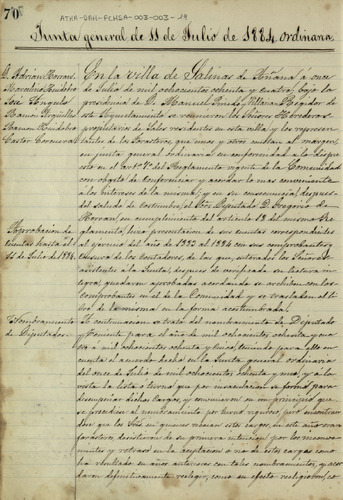 70
ATHA-DAH-FCHSA-003-003-19
Junta general de 11 de Julio de 1884 ordinaria
En la villa de Salinas de Añana á once
de Julio de mil ochocientos ochenta y cuatro, bajo la
presidencia de D. Manuel Villaran Regidor de
este Ayuntamiento se reunieron los Señores Herederos
propietarios de Sales residentes en esta villa y los represen
tantes de los forasteros, que unos y otros constan al margen,
en junta general ordinaria en conformidad á lo dispues
to en el del Reglamento vigente de la Comunidad
con objeto de conferenciar y acordar lo mas conveniente
á los intereses de la misma; y en su consecuencia despues
del saludo de costumbre, el Sor Diputado D. Gregorio de
en cumplimiento del articulo 13 del mismo Re
glamento, hizo presentacion de sus cuentas correspondientes
al ejercicio del año de 1883 al 1884 con sus comprobantes y
censura de los contadores de las que, enterados los Señores
asistentes á la Junta, despues de verificada su lectura in
tegra, quedaron aprobadas acordando se archiven con los
comprobantes en el de la Comunidad y se trasladen al li
bro de la misma en la forma acostumbrada.
Aprobacion de
cuentas hasta el
11 de Julio de 1884.
Nombramiento
de Diputado
A continuacion se trató del nombramiento de Diputado
para el año de mil ochocientos ochenta y cua
tro á mil ochocientos ochenta y cinco, teniendo para ello en
cuenta el acuerdo hecho en la Junta general ordinaria
del once de Julio de mil ochocientos ochenta y uno, y á la
vista la lista ó turno que por insaculacion se formó para
desempeñar dichos cargos, y convinieron en un principio que
se procediera al nombramiento por turno riguroso, pero encontran
do que los Sres en quienes recaian estos cargos, en este año eran
forasteros, desistieron de su primera intencion por los inconve
nientes y retraso en la aceptacion ó no de estos cargos como
ha resultado en años anteriores con tales nombramientos, y acor
daron definitivamente reelegir, como en efecto reeligieron, co